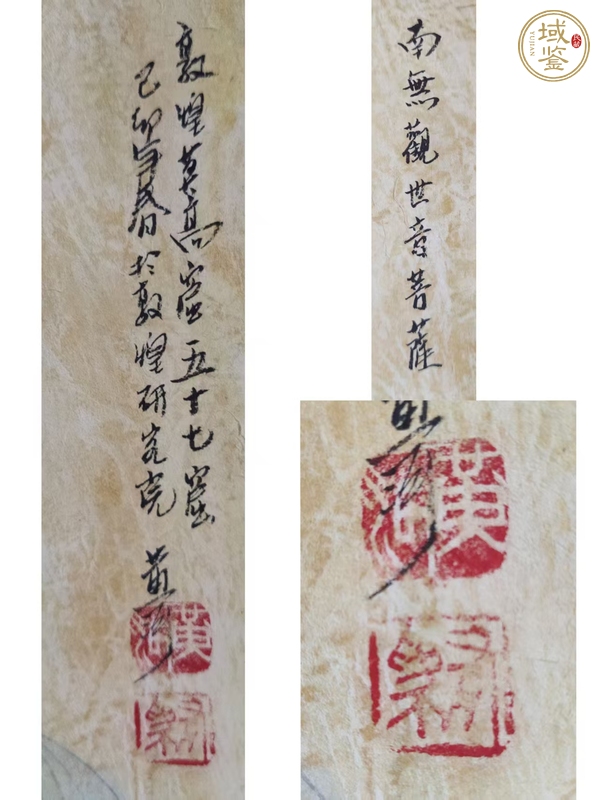 南無觀世音菩薩
敦煌莫高窟五十七窟
己卯年春於敦煌研究院 黃
域鉴
YUJIAN